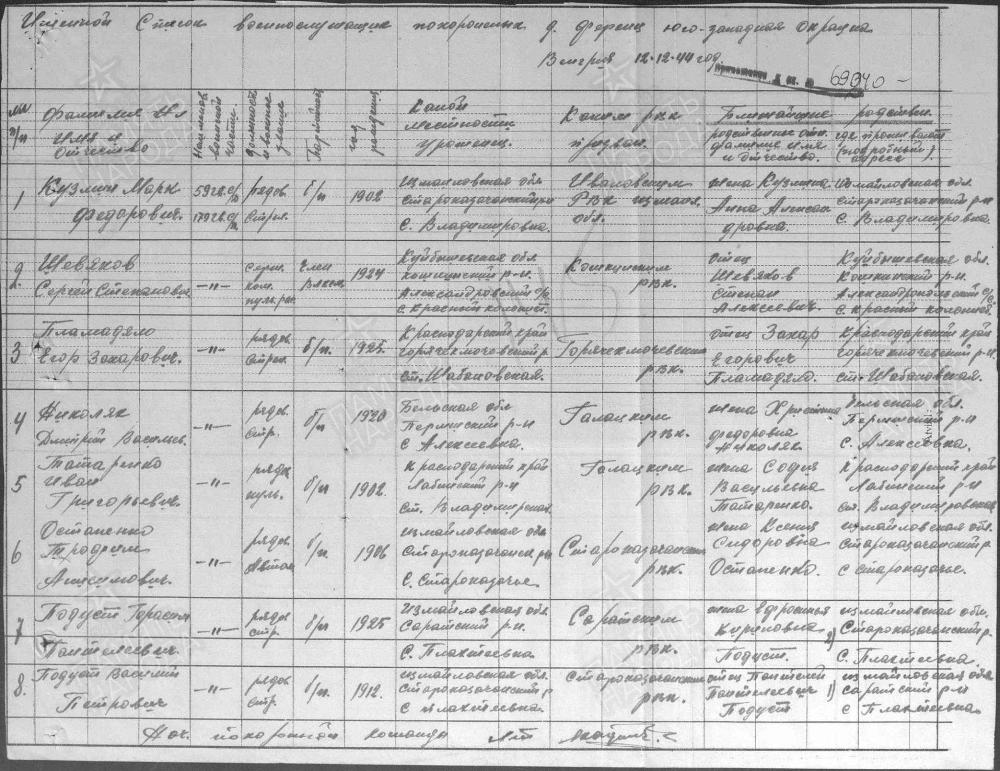 Именной Список военнослужащих похороненых д. Ференц юго-западная окраина
Венгрия 12.12.44 год.
69040 -
№№ п/п
Фамилия Имя и Отчество
воинской части.
Должность и военное звание
Партийность
год рождения
Какой местности уроженец.
Каким рвк призван.
Ближайшие родствен
родственные отн. фамилие имя и отчество.
где проживают (подробный адрес).
1 Кузмин Марк Федорович. 592 сп 179 сд рядов. Стрел. б/п 1902 Измаиловская обл Староказачанский р-н С. Владимировка. Ивановским РВК измаил. обл. жена Кузмина Анна Александровна. Измаиловская обл. Староказачанский р-н С. Владимировка
2. Шевяков Сергей Степанович -"- Серж. ком. пул. рас. Член 1924 Куйбышевская обл. Кошкинский р-н. Александровский с/с. с. Красная колония. Кошкинским рвк. отец Шевяков Степан Алексеевич. Куйбышевская обл. Кошкинский р-н. с/с. с. Красный колония.
3 Пламадяло Егор Захарович. -"- рядов Стрел. б/п. 1925. Краснодарский край горячеключевский р. ст. Шабановская. Горячеключевским рвк. отец Захар Егорович Пламадяло. Краснодарский край горячеключевский р-н. ст. Шабановская.
4 Николяк Дмитрий Васильев. -"- рядов. стр. б/п 1920 Бельская обл р-н С Алексеевка. Галацким рвк. жена Христина федоровна Николяк. Бельская обл. р-н с. Алексеевка.
5 Татаренко Иван Григорьевич. -"- рядов пул. б/п 1902. Краснодарский край Лабинский р-н Ст. Владимирская. Галацким рвк. жена София Васильевна Татаренко. Краснодарский край Лабинский р-н ст. Владимировская
6 Остапенко Трофим Анисимович. -"- рядов. Автом. б/п. 1906 измаиловская обл. Староказачанск р-н С. Староказачье. Староказачанским рвк. жена Ксения Сидоровна Остапенко. измаиловская обл. Староказачанский р. с Староказачье.
7 Подуст Герасим Пантелеевич. -"- рядов стр. б/п 1925 Измаиловская обл. Саратский р-н. С. Плахтеевка. Саратским рвк. жена Ефросинья Кириловна Подуст. 2) измаиловская обл. Староказачанский р. С. Плахтеевка.
8. Подуст Василий Петрович -"- рядов стр. б/п. 1912. измаиловская обл. Староказачанский р С Плахтеевка. Староказачанским рвк. отец Пантелей Пантелеевич Подуст 1) измаиловская обл саратский р-н с Плахтеевка.
Нач. похоронной команды Л-т